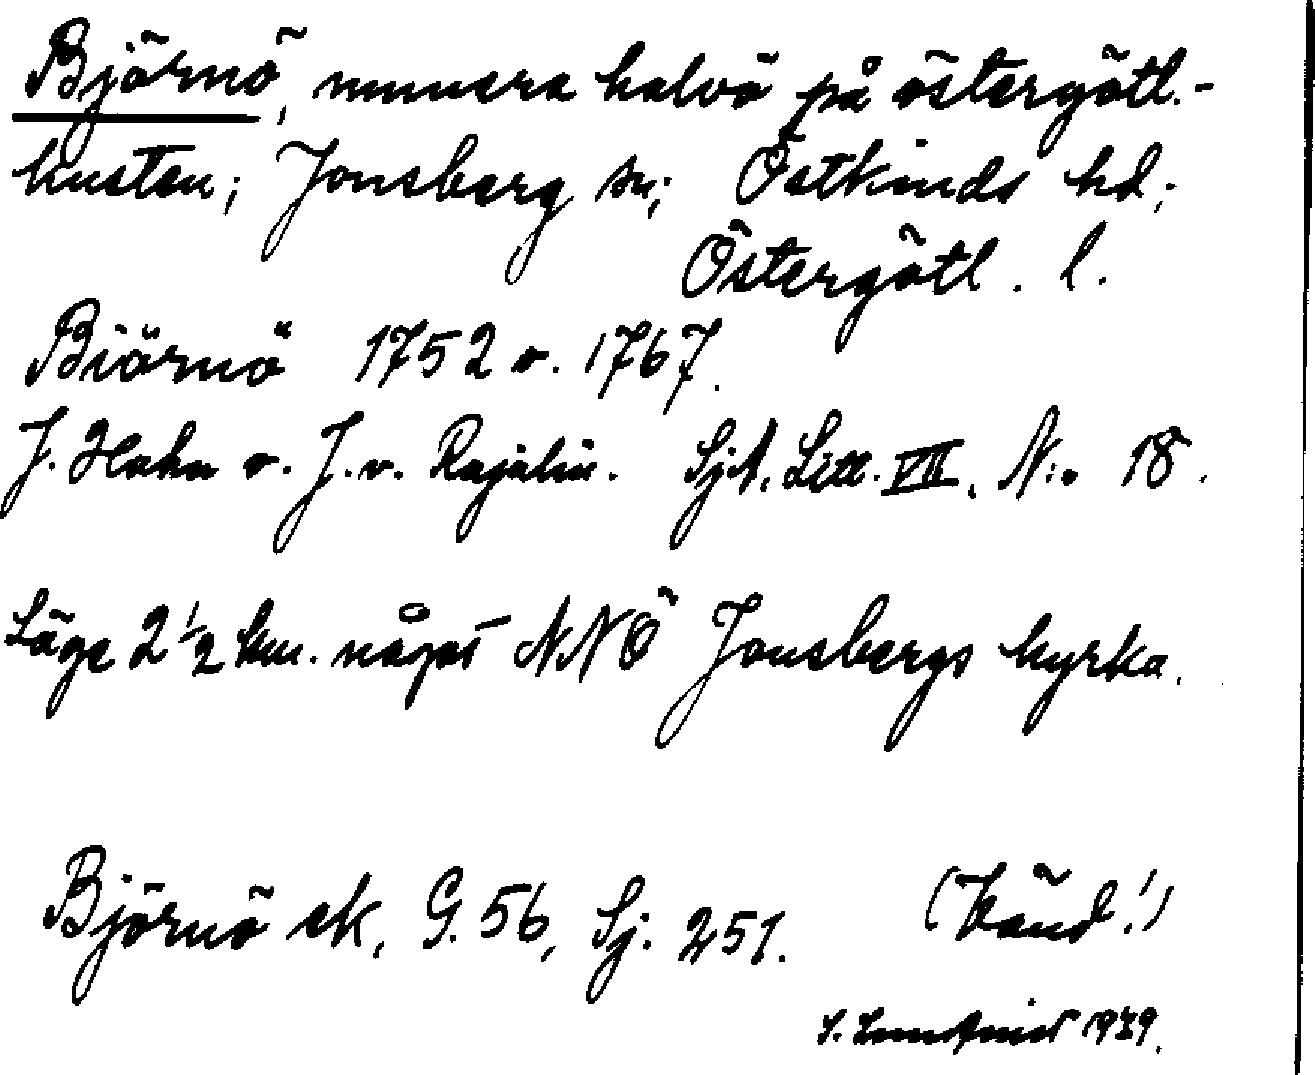 Björnö, numera halvö på östergötl.-
kusten; Jonsberg sn; Östkinds hd;
Östergötl. l.
Biörnö 1752 o. 1767.
J. Hahn o. J. v. Rajalin. SjA. Litt. VII. N:o 18.
Läge 2 ½ km. något NNÖ Jonsbergs kyrka.
Björnö ek. G. 56, Sj. 251. (känd!)
1939.